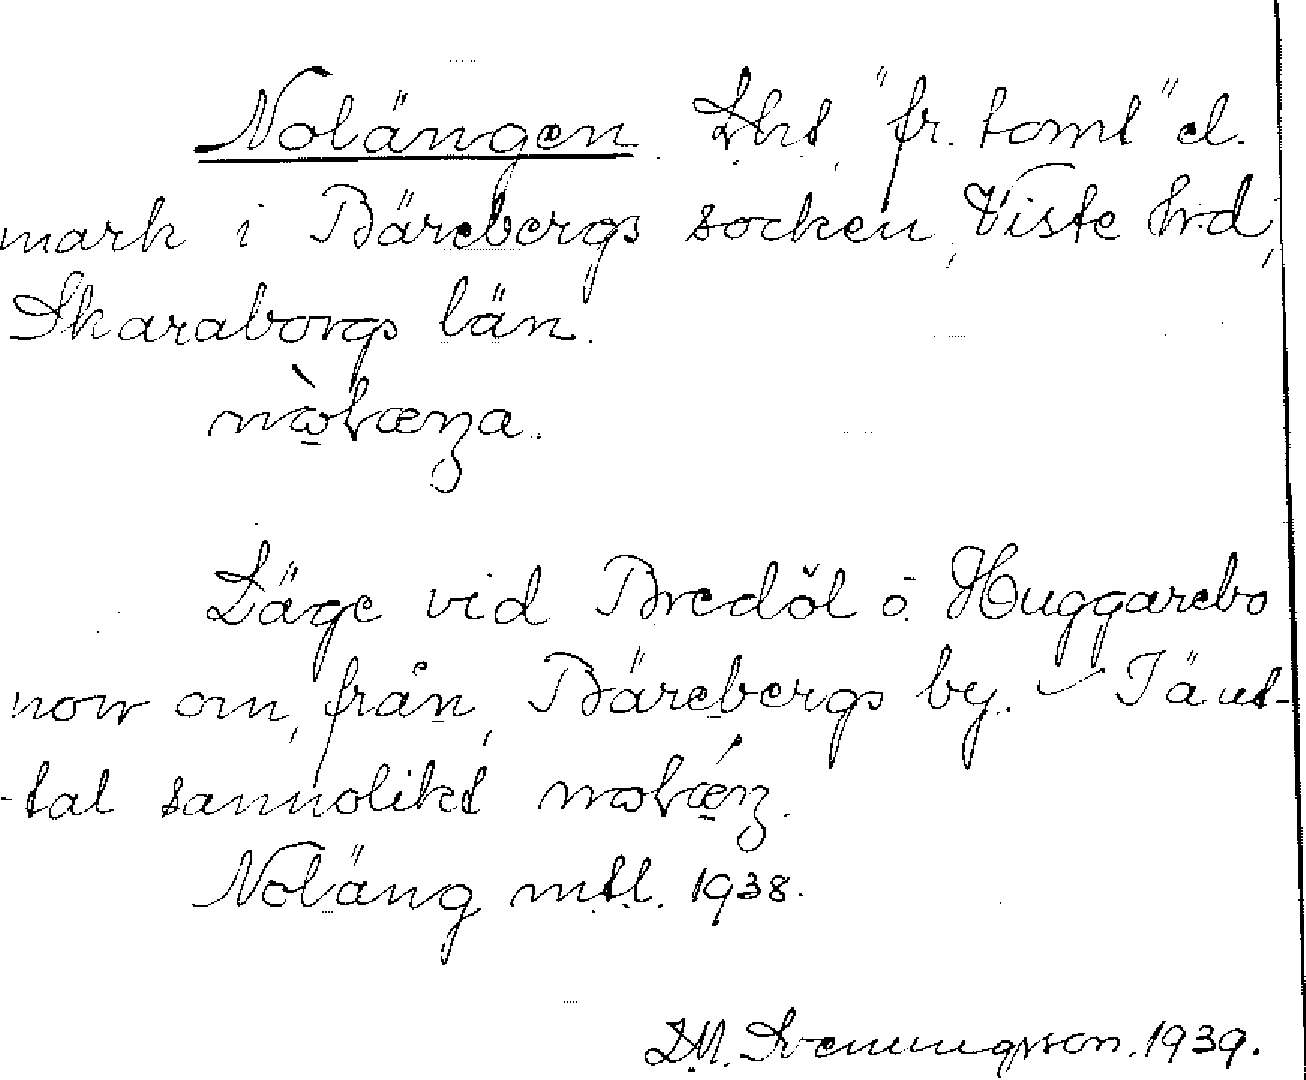 Nolängen. Lht, "fr. tomt" el.
mark i Bärebergs socken, Viste hd,
Skaraborgs län.
nòlæŋa.
Läge vid Bredöl o. Huggarebo
norr om, från, Bärebergs by. — I ånt-
-tal sannolikt nolǽŋ.
Noläng mtl. 1938.
D.M. Svenungsson. 1939.